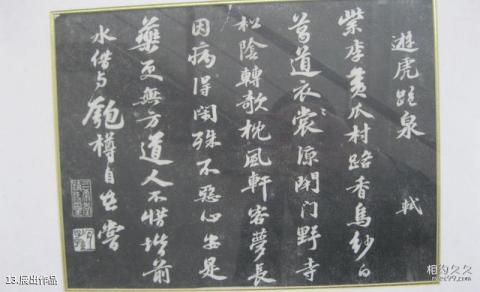 遊虎跑泉 軾
紫李黃瓜村路香烏紗白
葛道衣裳凉閉門野寺
松陰轉欹枕風軒客夢長
因病得閑殊不惡心安是
藥更無方道人不惜堦前
水借與匏樽自在嘗
13.展出作品
相约久久
meet99.com